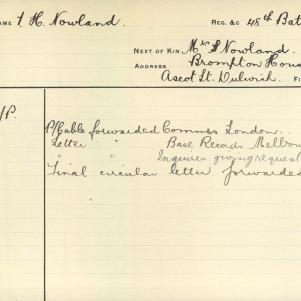 NAME I. H. Nowland
REG. &c 48th Bat
NEXT OF KIN Mrs S Nowland.
ADDRESS Brompton Hous
Ascot St. Dulwich. Fi
/P.
P/Cable forwarded Commns London.
Letter " Base Records Melbou
" " Inquirer giving request
Final circular letter forwarded